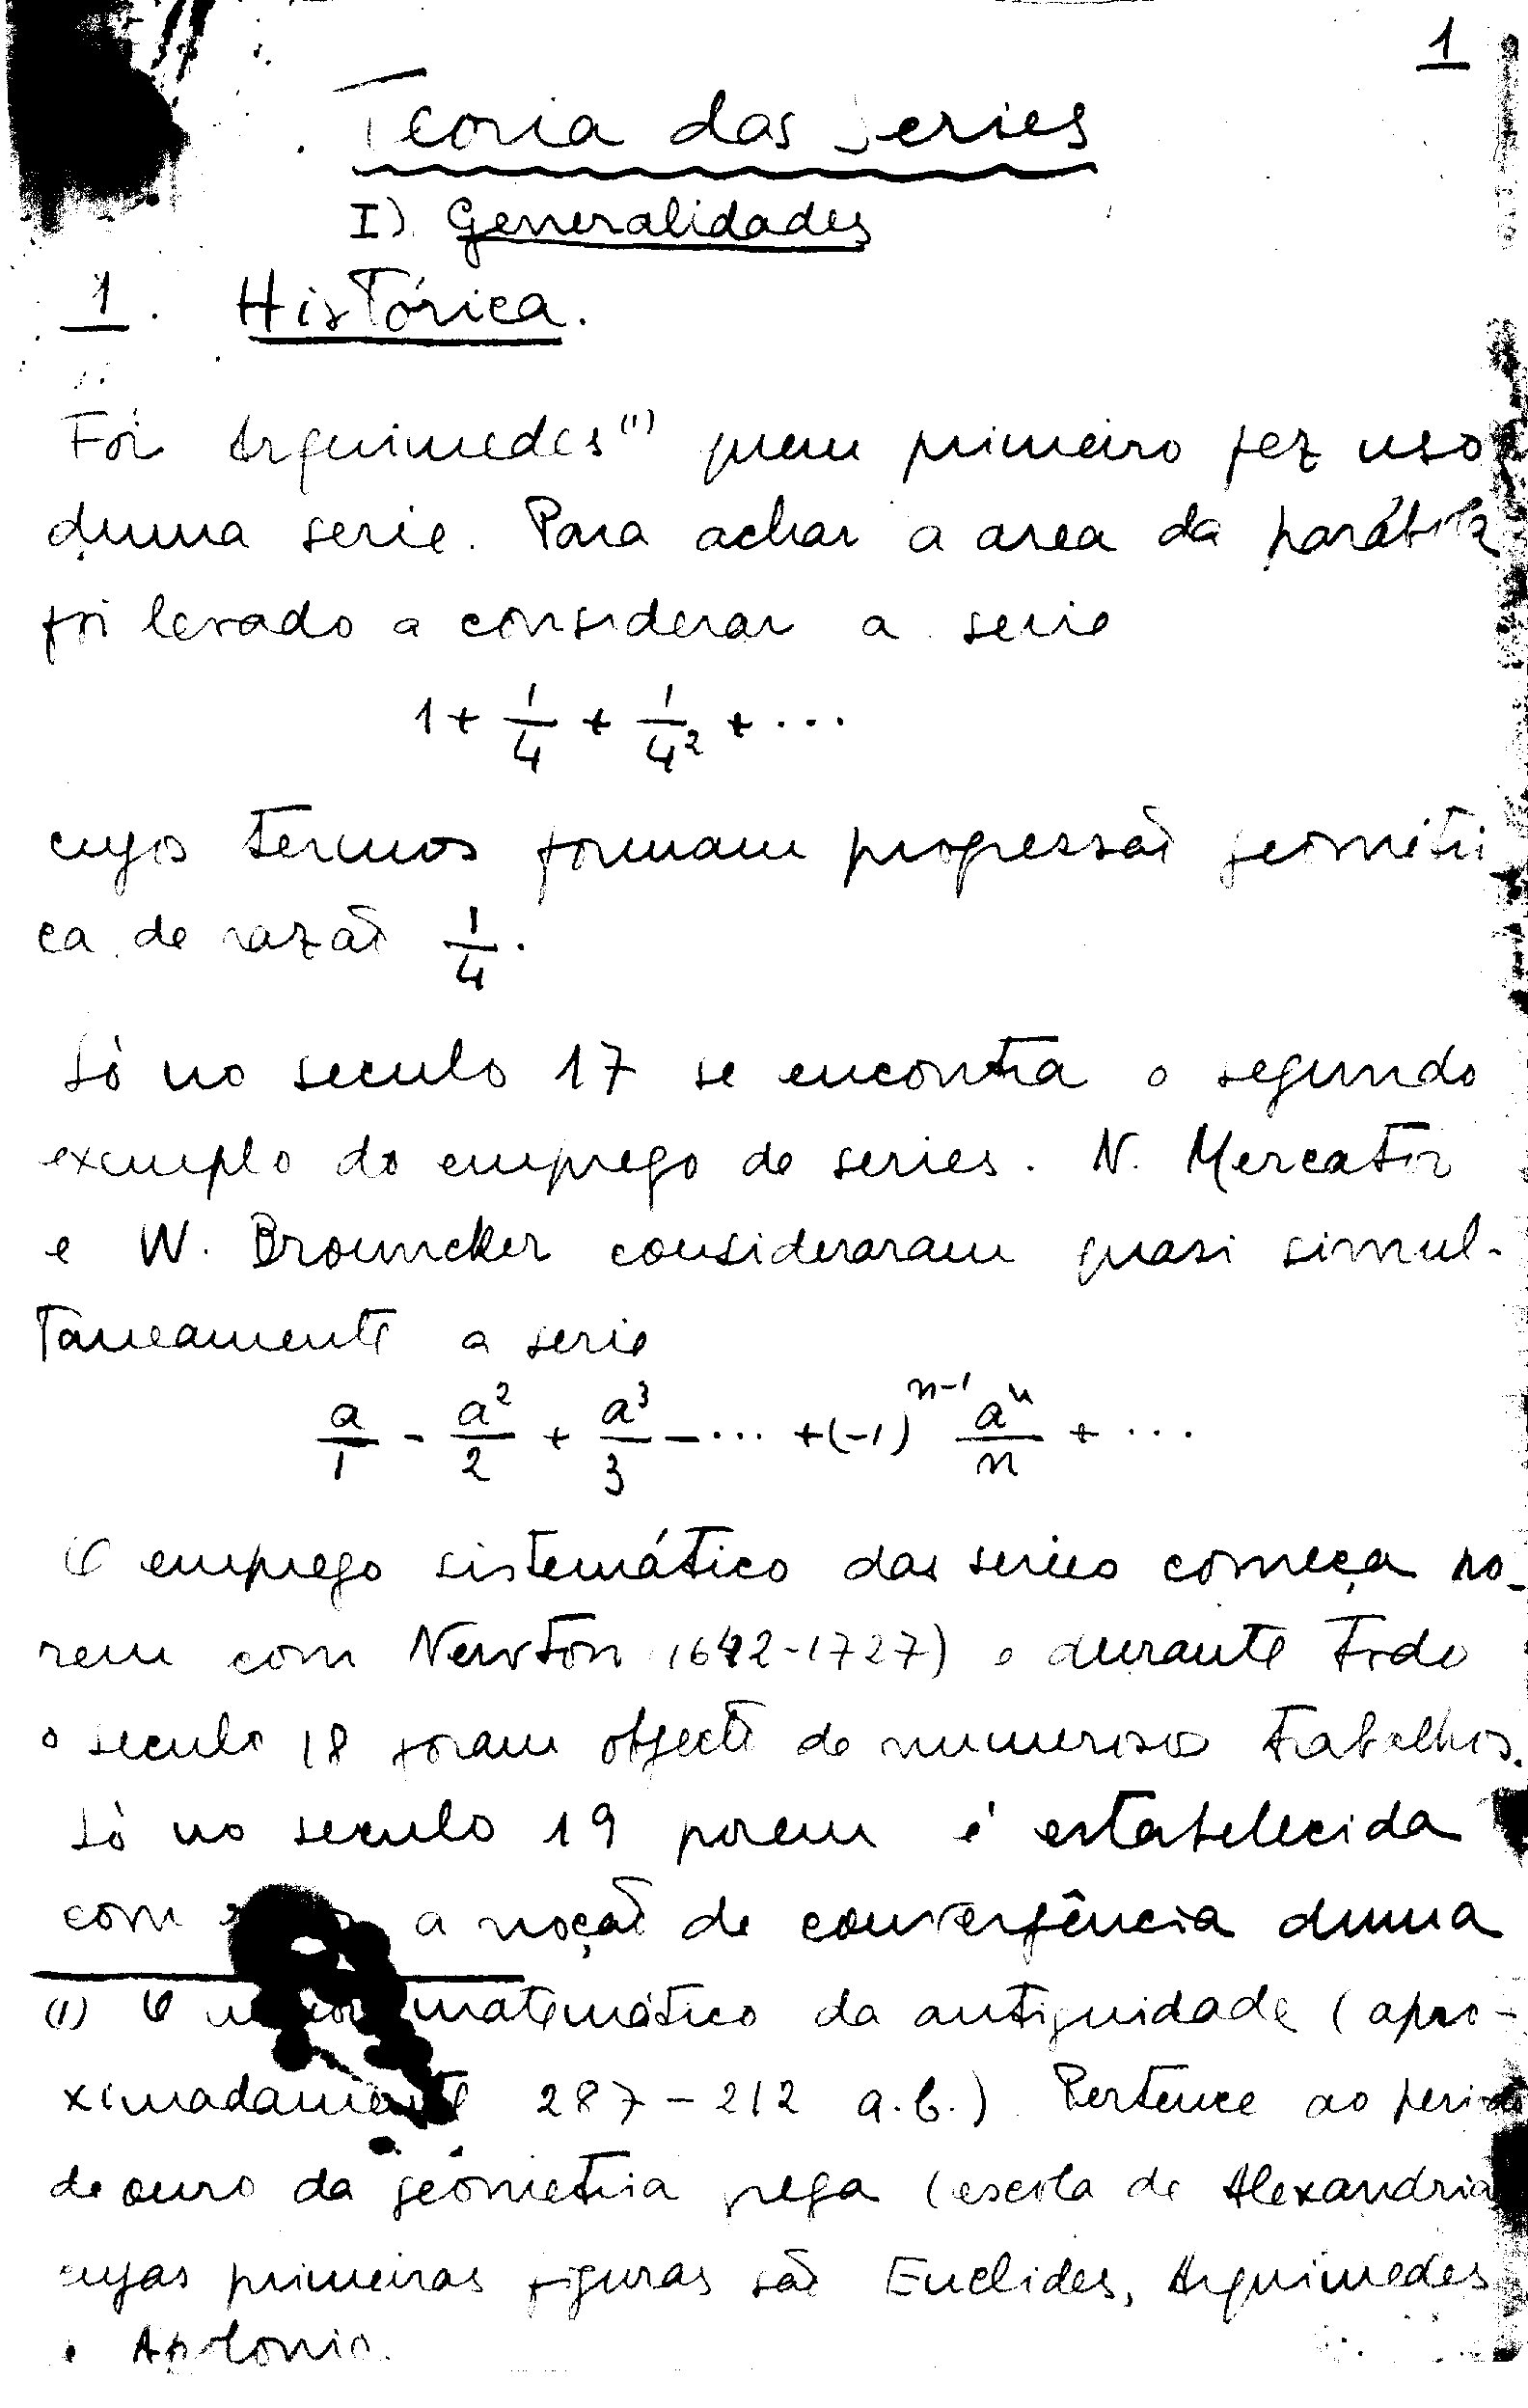 1
Teoria das Series
I) Generalidades
1. Histórica.
Foi Arquimedes (1) quem primeiro fez uso
duma serie. Para achar a area da parábola
foi levado a considerar a serie
1 + 1/4 + 1/4² + ...
cujos termos formam progressão geométri
ca de razão 1/4.
Só no seculo 17 se encontra o segundo
exemplo do emprego de series. N. Mercator
e W. Brouncker consideraram quasi simul-
taneamente a serie
a/1 - a²/2 + a³/3 - ... + (-1)ⁿ⁻¹ aⁿ/n + ...
O emprego sistemático das series começa po-
rem com Newton (1642-1727) e durante todo
o seculo 18 foram objecto de numerosos trabalhos.
Só no seculo 19 porem é estabelecida
com a noção de convergência duma
(1) O maior matemático da antiguidade (apro-
ximadamente 287-212 a.C.). Pertence ao
de ouro da geometria grega (escola de Alexandria
cujas primeiras figuras são Euclides, Arquimedes
e Apolonio.